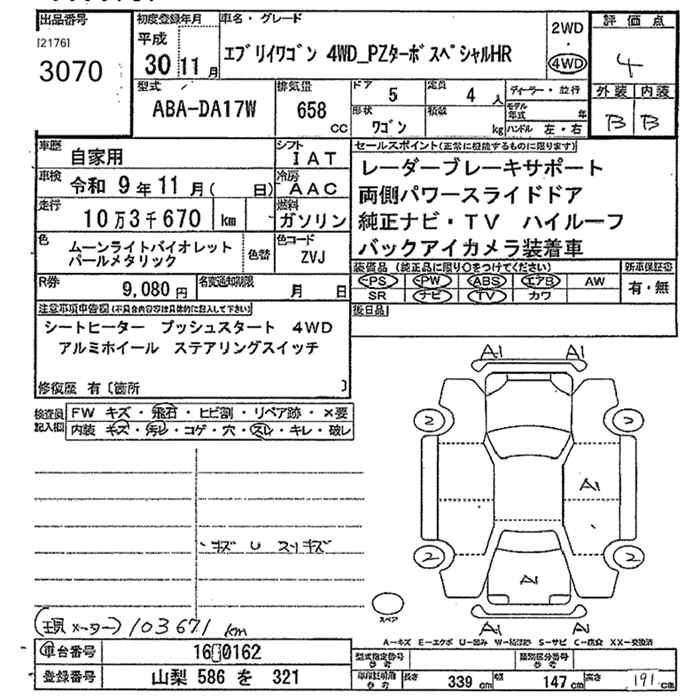 出品番号
[2176]
3070
初度登録年月
平成
30 11 月
車名・グレード
エブリイワゴン 4WD_PZターボスペシャルHR
2WD
・
4WD
評価点
4
外装 内装
B B
型式
ABA-DA17W
排気量
658
cc
ドア
5
定員
4 人
形状
ワゴン
積載
kg
ディーラー・並行
モデル年式 年
ハンドル 左・右
車歴
自家用
シフト
IAT
車検
令和 9年 11月( 日)
冷房
AAC
走行
10万3千670 km
燃料
ガソリン
色
ムーンライトバイオレット
パールメタリック
色替
色コード
ZVJ
R券
9,080 円
名変通知期限
月 日
セールスポイント(正常に機能するものに限ります)
レーダーブレーキサポート
両側パワースライドドア
純正ナビ・TV ハイルーフ
バックアイカメラ装着車
装備品 (純正品に限り○をつけてください)
PS PW ABS エアB AW
SR ナビ TV カワ
新車保証書
有・無
後日品
注意事項申告欄(不具合内容は具体的に記入して下さい)
シートヒーター プッシュスタート 4WD
アルミホイール ステアリングスイッチ
修復歴 有〔箇所 〕
検査員
記入欄
FW キズ・飛石・ヒビ割・リペア跡・×要
内装 キズ・汚レ・コゲ・穴・スレ・キレ・破レ
キズ U スリキズ
(現 メーター) 103671 km
A1 A1
2 2
A1
2 2
A1
A1 A1
スペア
A-キズ E-エクボ U-凹み W-補修跡 S-サビ C-腐食 XX-交換済
車台番号
160162
登録番号
山梨 586 を 321
型式指定番号
参考
類別区分番号
参考
車検証明書
参考
長さ 339 cm 幅 147 cm 高さ 191 cm